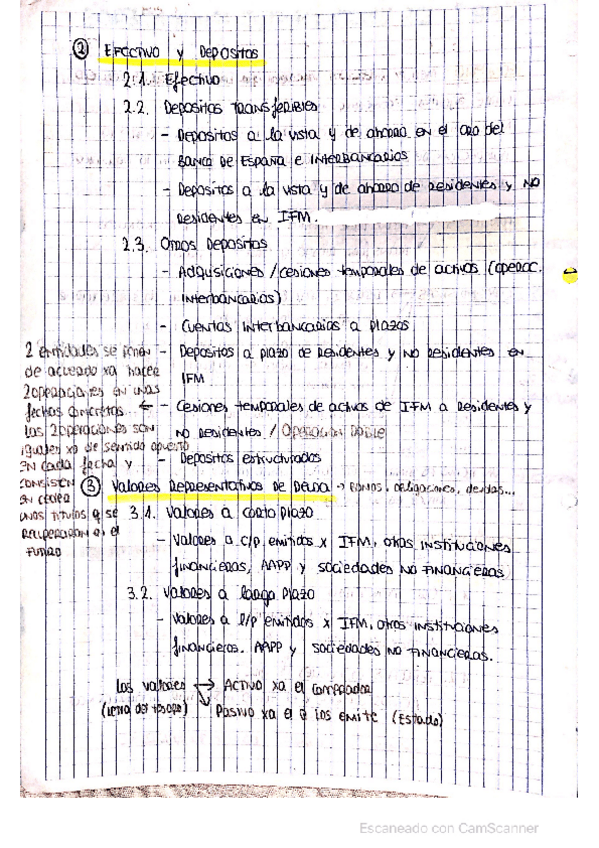 ② EFECTIVO y DEPOSITOS
2.1. Efectivo
2.2. DEPOSITOS TRANSFERIBLES
- DEPOSITOS a la vista y de ahorro en el
Banco de España e INTERBANCARIOS
- DEPOSITOS a la vista y de ahorro de residentes y NO
Residentes en IFM.
2.3. Otros DEPOSITOS
- Adquisiciones / cesiones temporales de activos (operac.
INTERBANCARIOS)
- Cuentas INTERBANCARIOS a plazos
- DEPOSITOS a plazo de residentes y NO residentes en
IFM
- Cesiones temporales de activos de IFM a residentes y
NO RESIDENTES / OPERACION DOBLE
- DEPOSITOS estructurados
2 entidades se ponen
de acuerdo xa hacer
2 operaciones en unas
fechas concretas. ←
Las 2 operaciones son
iguales xo de sentido opuesto
en cada fecha y
consisten
en ceder
unos titulos q se
recuperarán en el
futuro
③ Valores REPRESENTATIVOS DE DEUDA → BONOS, obligaciones, deudas...
3.1. Valores a corto plazo
- Valores a c/p emitidos x IFM, otras instituciones
financieras, AAPP y sociedades NO FINANCIERAS
3.2. Valores a largo plazo
- Valores a l/p emitidos x IFM, otros instituciones
financieros. AAPP y sociedades NO FINANCIERAS.
Los valores → ACTIVO xa el comprador
(letra del tesoro) ↘ Pasivo xa el q los emite (Estado)
Escaneado con CamScanner